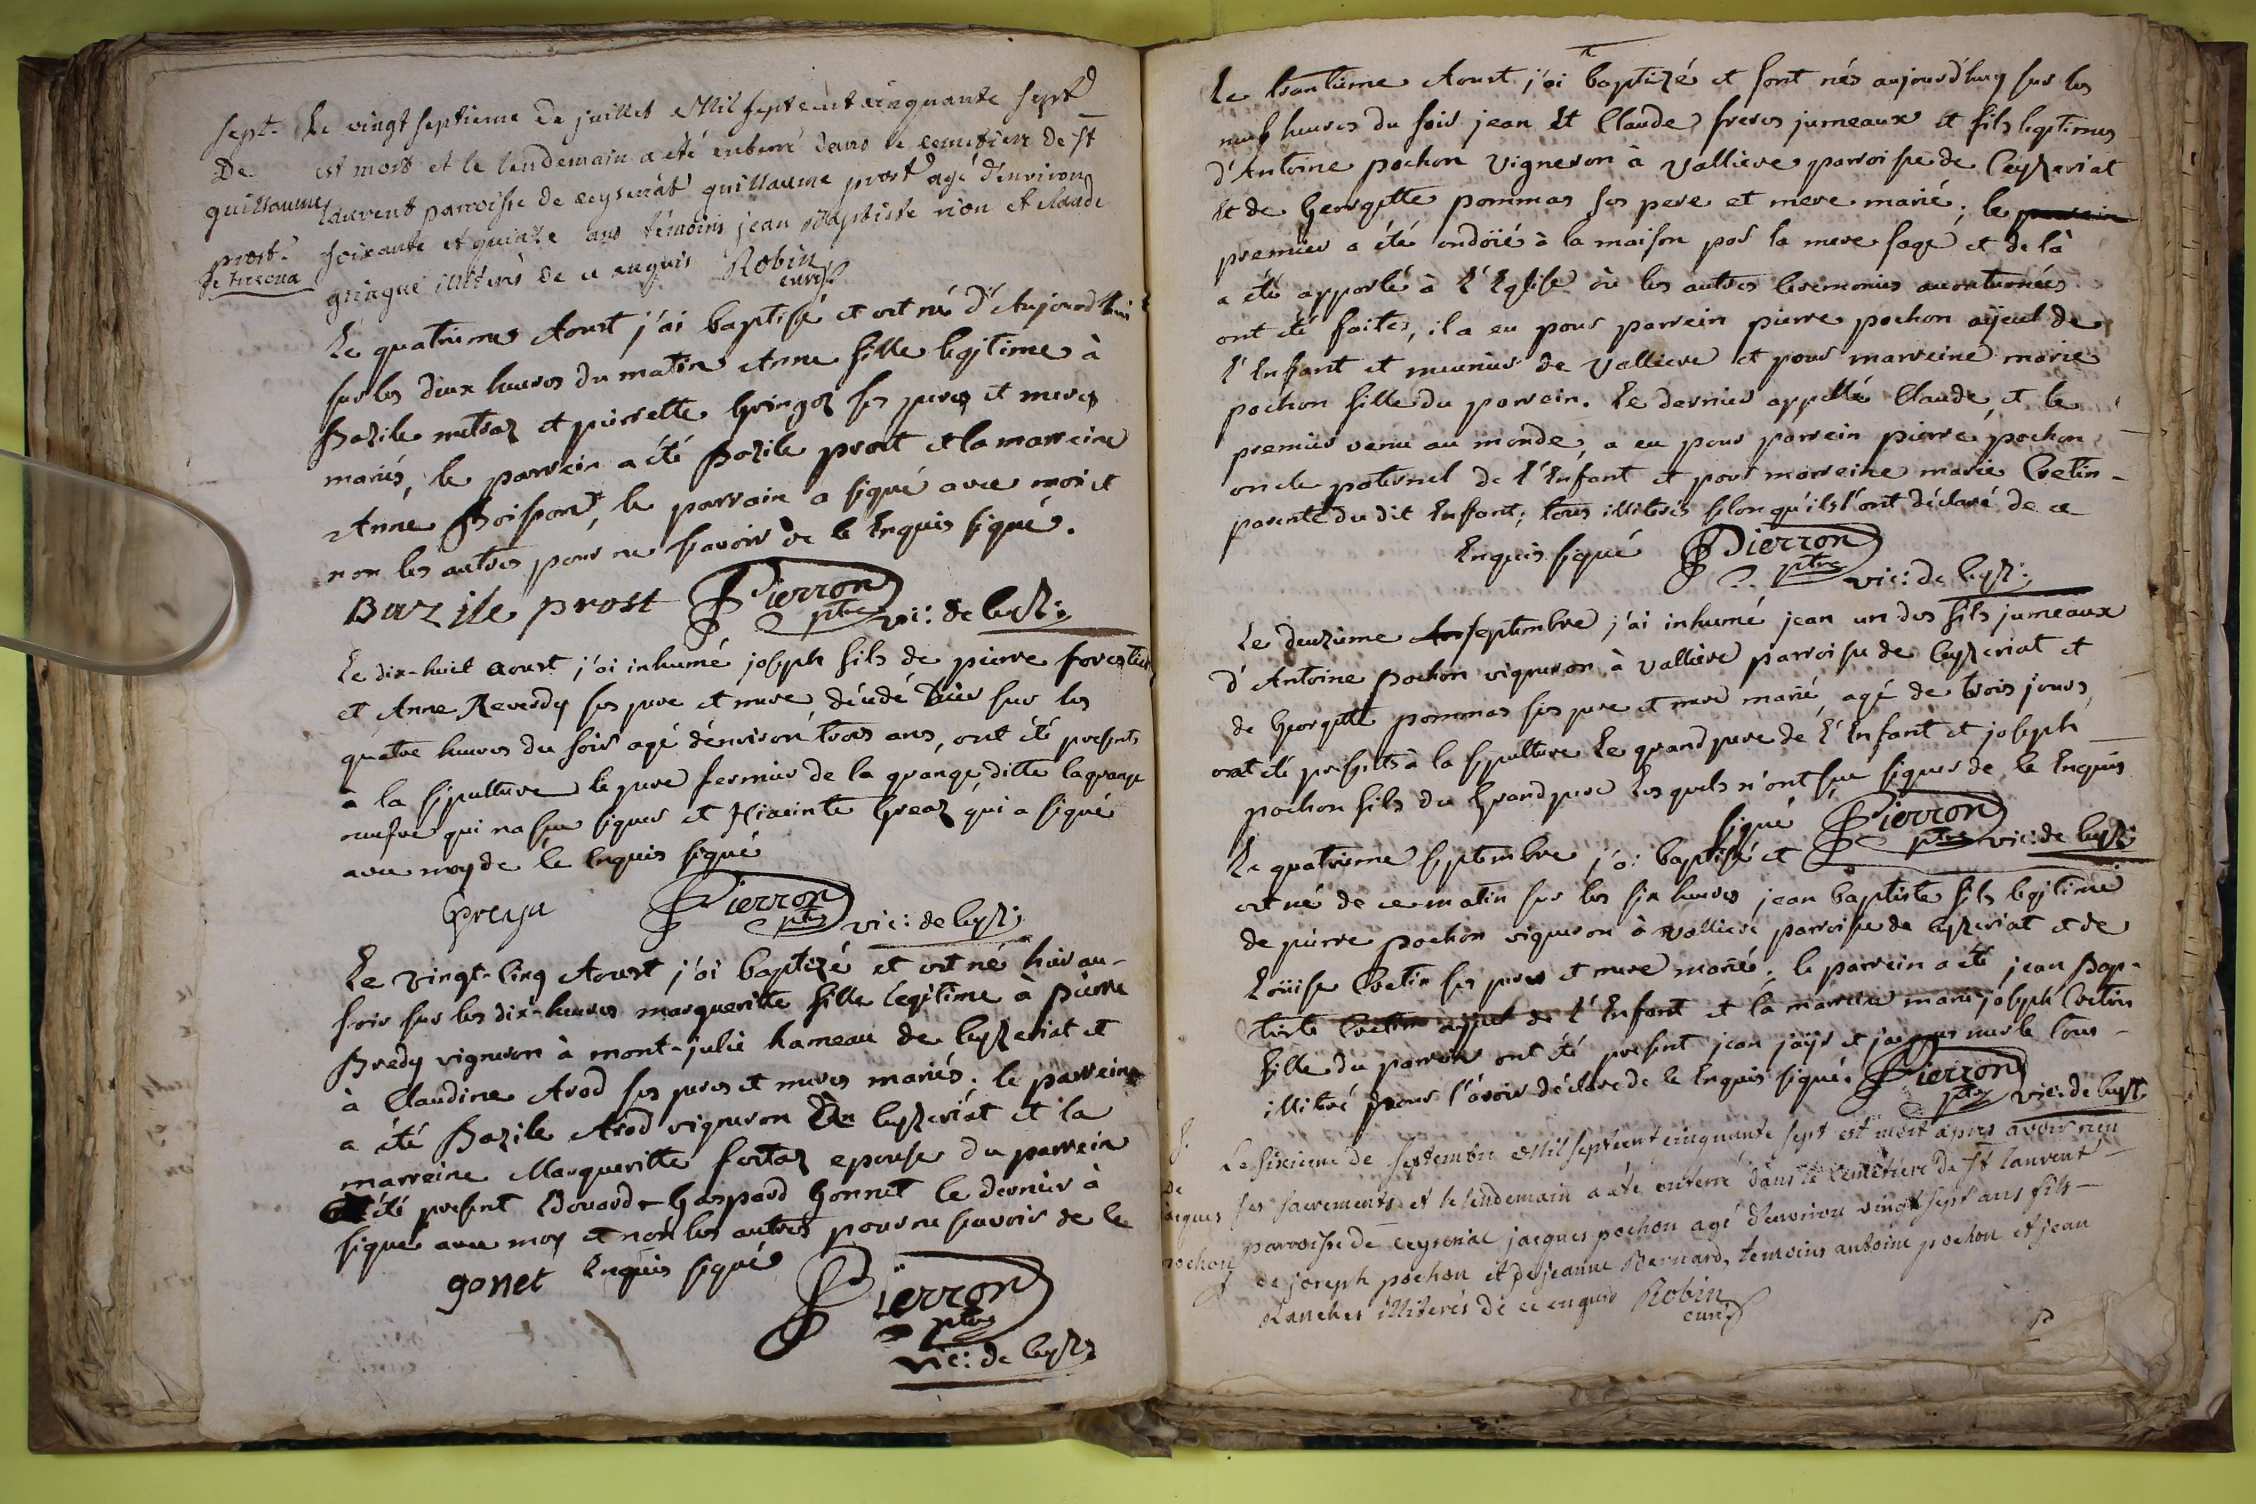 sept.re
De
guillaume
prost.
de tresona
Le vingt septieme de juillet Mil sept cent cinquante sept
est mort et le lendemain a été enterré dans le cemetiere de st
laurent parroisse de ceyseriat guillaume prost agé d'environ
soixante et quinze ans témoins jean Baptiste rion et claude
guingué illiterés de ce enquis Robin
curé
Le quatrieme Aoust j'ai baptisé et est né d'Aujourd'hui
sur les deux heures du matin Anne fille legitime à
Bazile metraz et pierrette Gringoz ses peres et meres
mariés, le parrein a été Bazile prost et la marreine
Anne Boisson, le parrain a signé avec moi et
non les autres pour ne sçavoir de le Enquis signé.
Bazile prost Pierron
ptre vic: de ceyz:
Le dix-huit aoust j'ai inhumé joseph fils de pierre forestier
et Anne Reverdy ses pere et mere décédé hier sur les
quatre heures du soir agé d'environ trois ans, ont été presents
à la sépulture le pere fermier de la grange ditte la grange
neufve qui na sçu signer et Hiacinte Greaz qui a signé
avec moy de le Enquis signé
Greya Pierron
ptre vic: de ceyz:
Le vingt-Cinq Aoust j'ai baptizé et est né hier au-
soir sur les dix-heures margueritte fille legitime à pierre
Bredy vigneron à mont-julie hameau de ceyzeriat et
à Claudine Arod ses peres et meres mariés; le parrein
a été Bazile Arod vigneron de ceyzeriat et la
marreine Margueritte fortaz epouse du parrein
été present Edouard-Gaspard Gonnet le dernier à
signé avec moy et non les autres pour ne sçavoir de le
gonet Enquis signé Pierron
ptre
vic: de ceyz:
Le trantieme Aoust j'ai baptizé et sont nés aujourd'huy sur les
neuf heures du soir jean et Claude freres jumeaux et fils legitimes
d'Antoine pochon Vigneron à Valliere parroisse de Ceyzeriat
et de Georgette pommas ses pere et mere marié; le parrein
premier a été ondoïé à la maison par la mere sage et de là
a été apporté à l'Eglise où les autres Ceremonies accoutumées
ont été faites, il a eu pour parrein pierre pochon aÿeul de
l'Enfant et meunier de Valliere et pour marreine marie
pochon fille du parrein. Le dernier appellé Claude, et le
premier venu au monde, a eu pour parrein pierre pochon
oncle paternel de l'Enfant et pour marreine marie Cretin
parente du dit Enfant; tous illiterés selon qu'ils l'ont déclaré de ce
Enquis signé Pierron
ptre vic: de ceyz:
Le deuzieme septembre j'ai inhumé jean un des fils jumeaux
d'Antoine pochon vigneron à Valliere parroisse de Ceyzeriat et
de Georgette pommas ses pere et mere marié, agé de trois jours,
ont été presents à la sepulture Le grand pere de l'Enfant et joseph
pochon fils du Grand pere Lesquels n'ont sçu signer de le Enquis
signé Pierron
ptre vic: de ceyz:
Le quatrieme septembre j'ai baptisé et
est né de ce matin sur les six heures jean baptiste fils legitime
de pierre pochon vigneron à Valliere parroisse de ceyzeriat et de
Loüise Cretin ses peres et mere marié; le parrein a été jean Bap-
tiste Cretin ayeul de l'Enfant et la marreine marie joseph Cretin
fille du parrein ont été present jean jaÿr et jacques tous
illitré pour l'avoir déclaré de le Enquis signé. Pierron
ptre vic: de ceyz:
S.
De
jacques
pochon
Le sixieme de septembre Mil sept cent cinquante sept est mort apres avoir reçu
ses sacrements et le lendemain a été enterré dans le cemetiere de st laurent
parroisse de ceyseriac jacques pochon agé d'environ vingt sept ans fils
de joseph pochon et de jeanne Bernard, temoins antoine pochon et jean
Blanchet illiterés de ce enquis Robin
curé